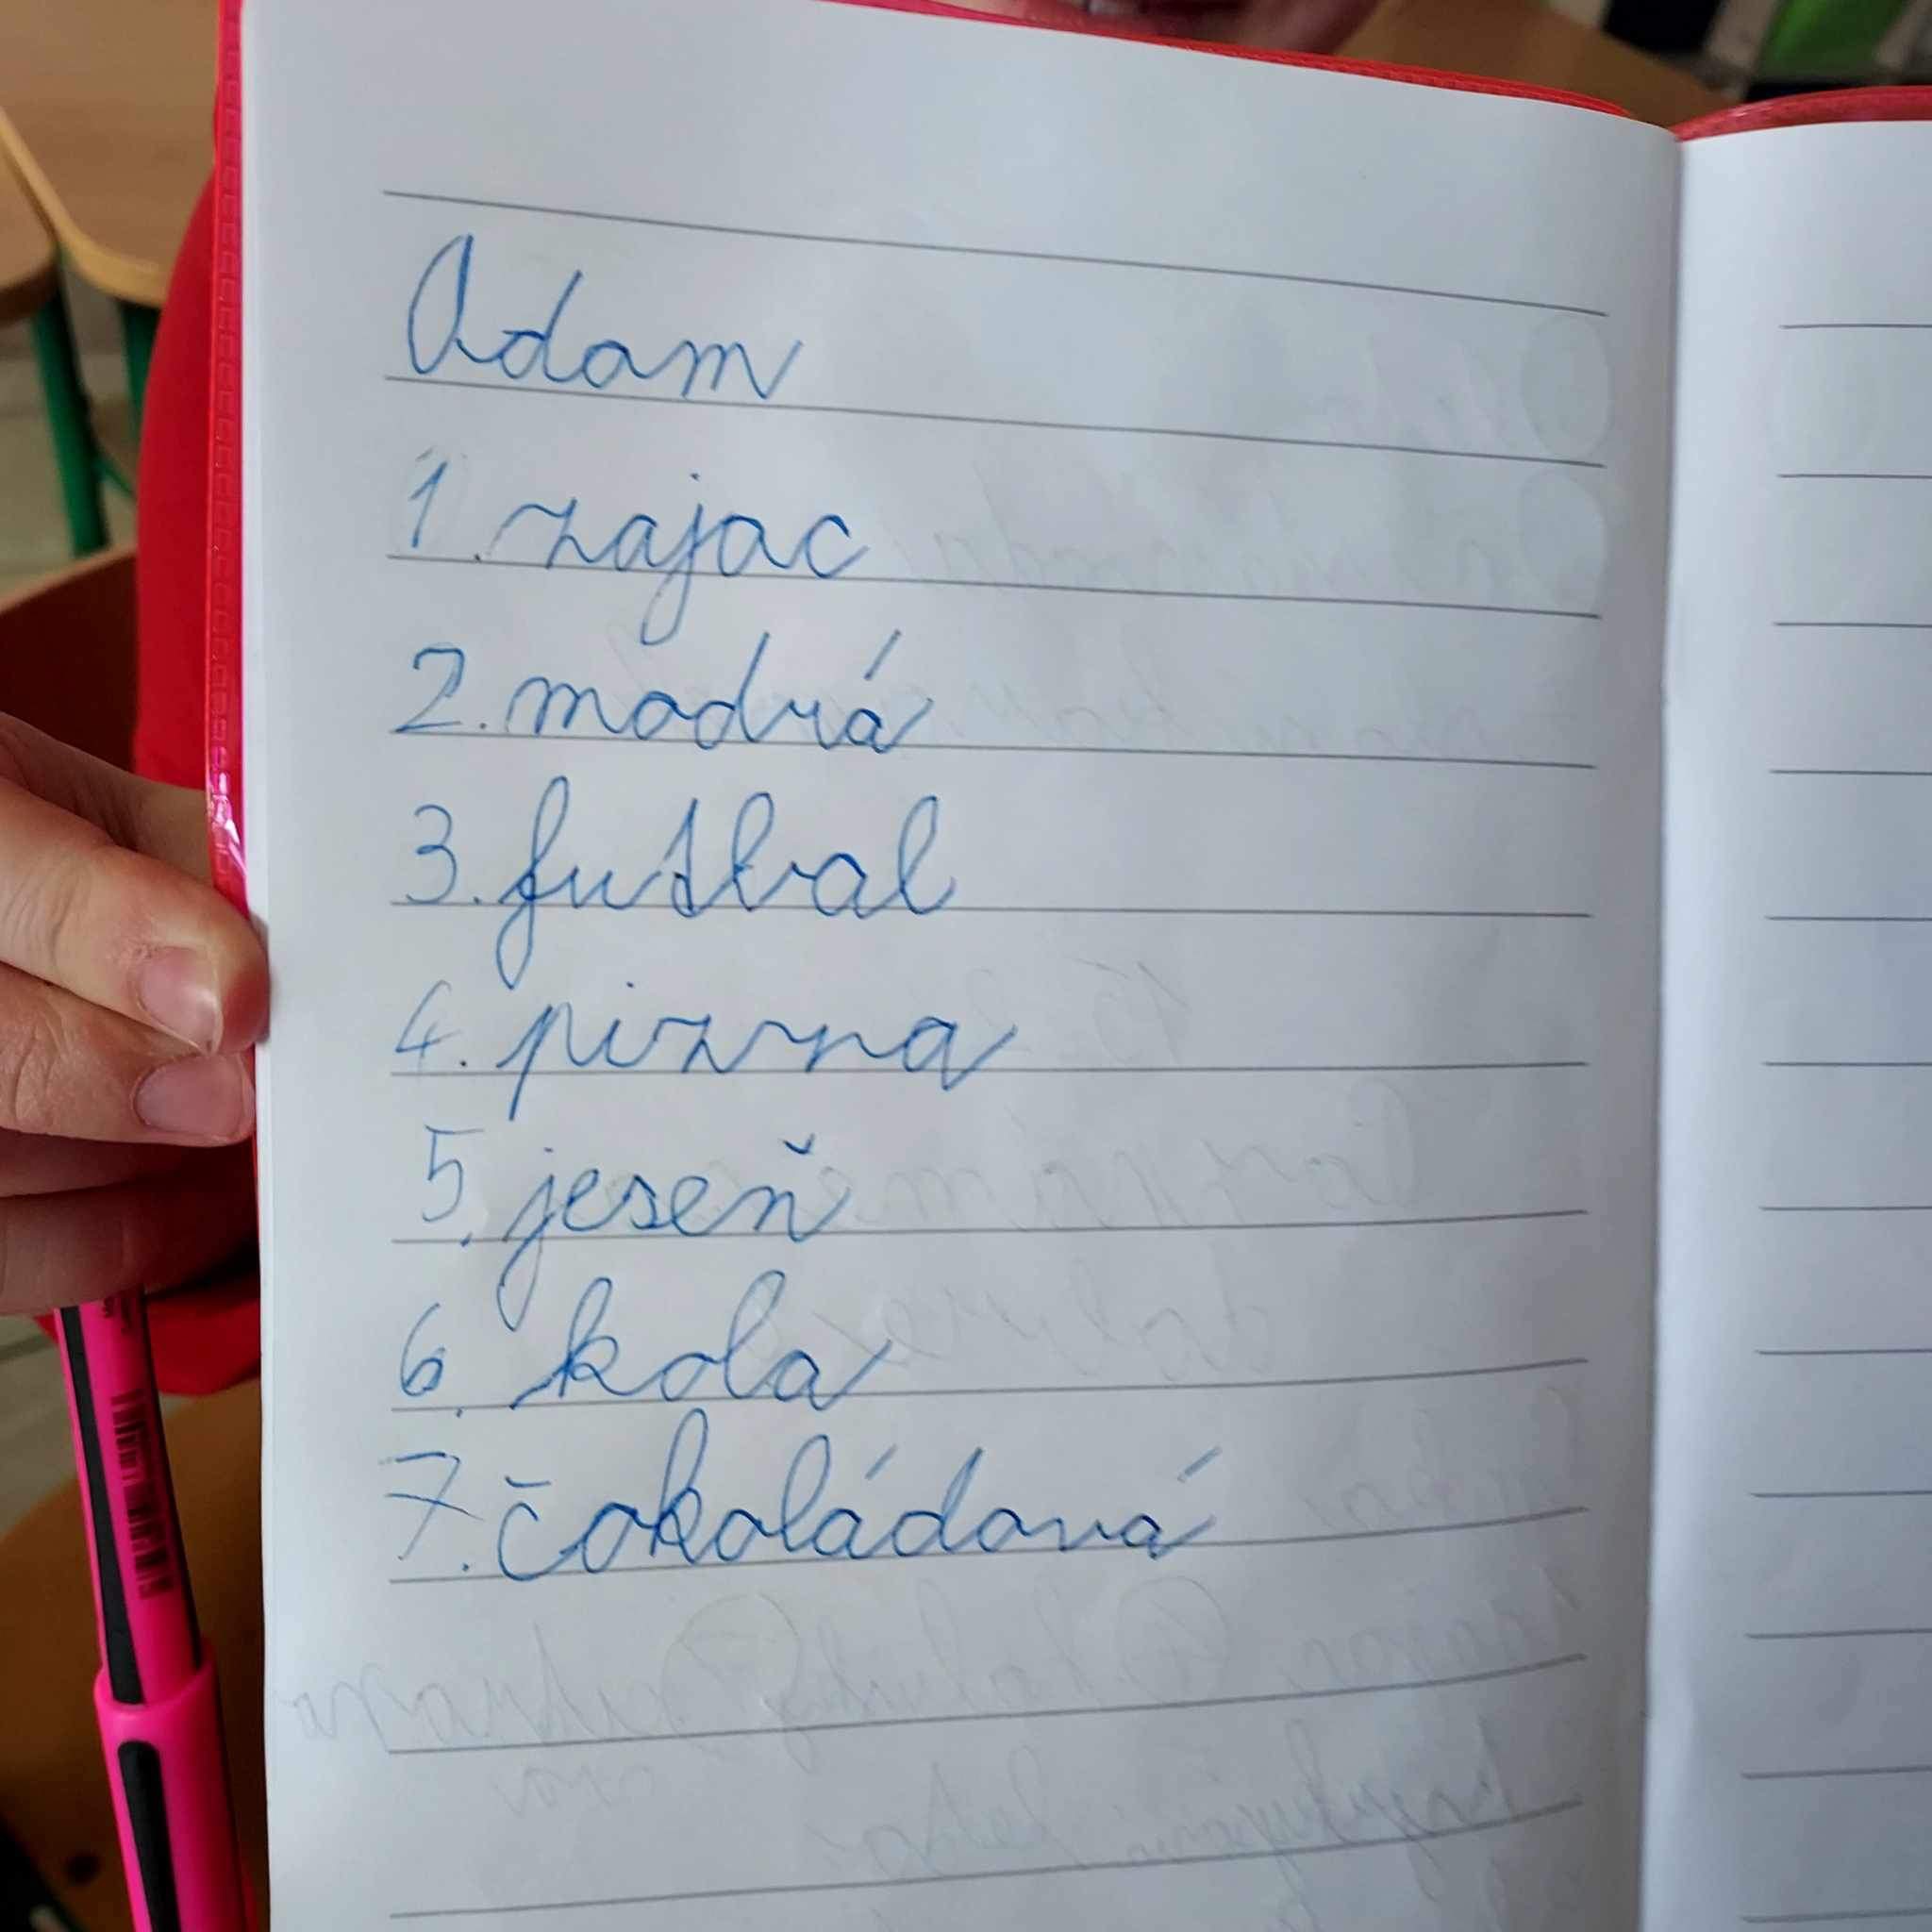 Adam
1. zajac
2. modrá
3. futbal
4. pizza
5. jeseň
6. kola
7. čokoládová